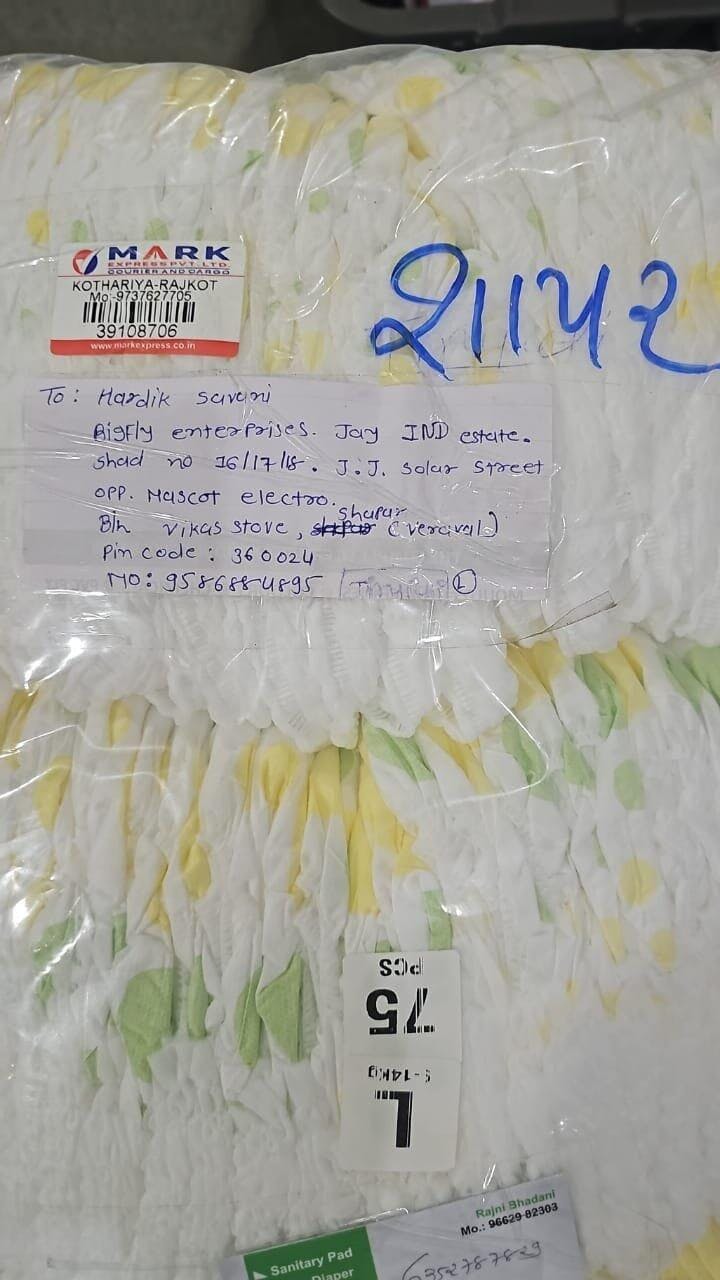 MARK
EXPRESS PVT. LTD.
COURIER AND CARGO
KOTHARIYA-RAJKOT
Mo:-9737627705
39108706
www.markexpress.co.in
શાપર
To: Hardik Savani
BigFly enterprises. Jay IND estate.
Shad no 16/17/18. J.J. Solar Street
OPP. Mascot electro.
B/h Vikas Stove, Shapar (Veraval)
Pin code: 360024
MO: 9586884895 L
75
PCS
L
-14Kg
Rajni Bhadani
Mo.: 96629 82303
Sanitary Pad
Diaper
6352787829